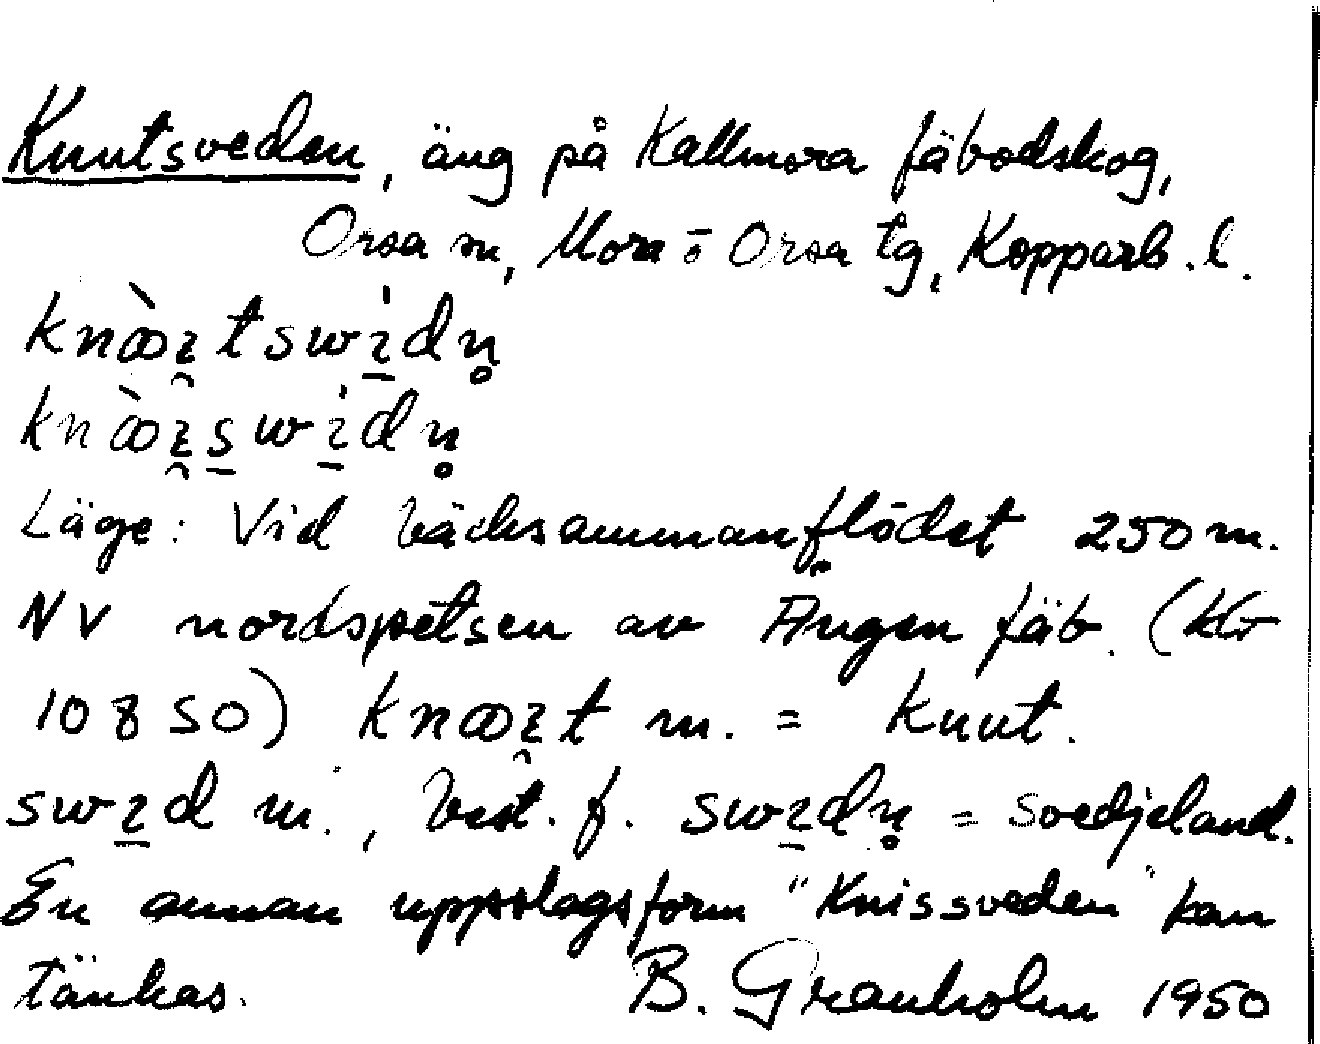 Knutsveden, äng på Kallmora fäbodskog,
Orsa sn, Mora o Orsa tg, Kopparb. l.
Läge: Vid bäcksammanflödet 250 m.
NV nordspetsen av Ängen fäb. (Kr
10850) m. = Knut.
m., best. f. = svedjeland.
En annan uppslagsform "Knissveden" kan
tänkas. B. Granholm 1950